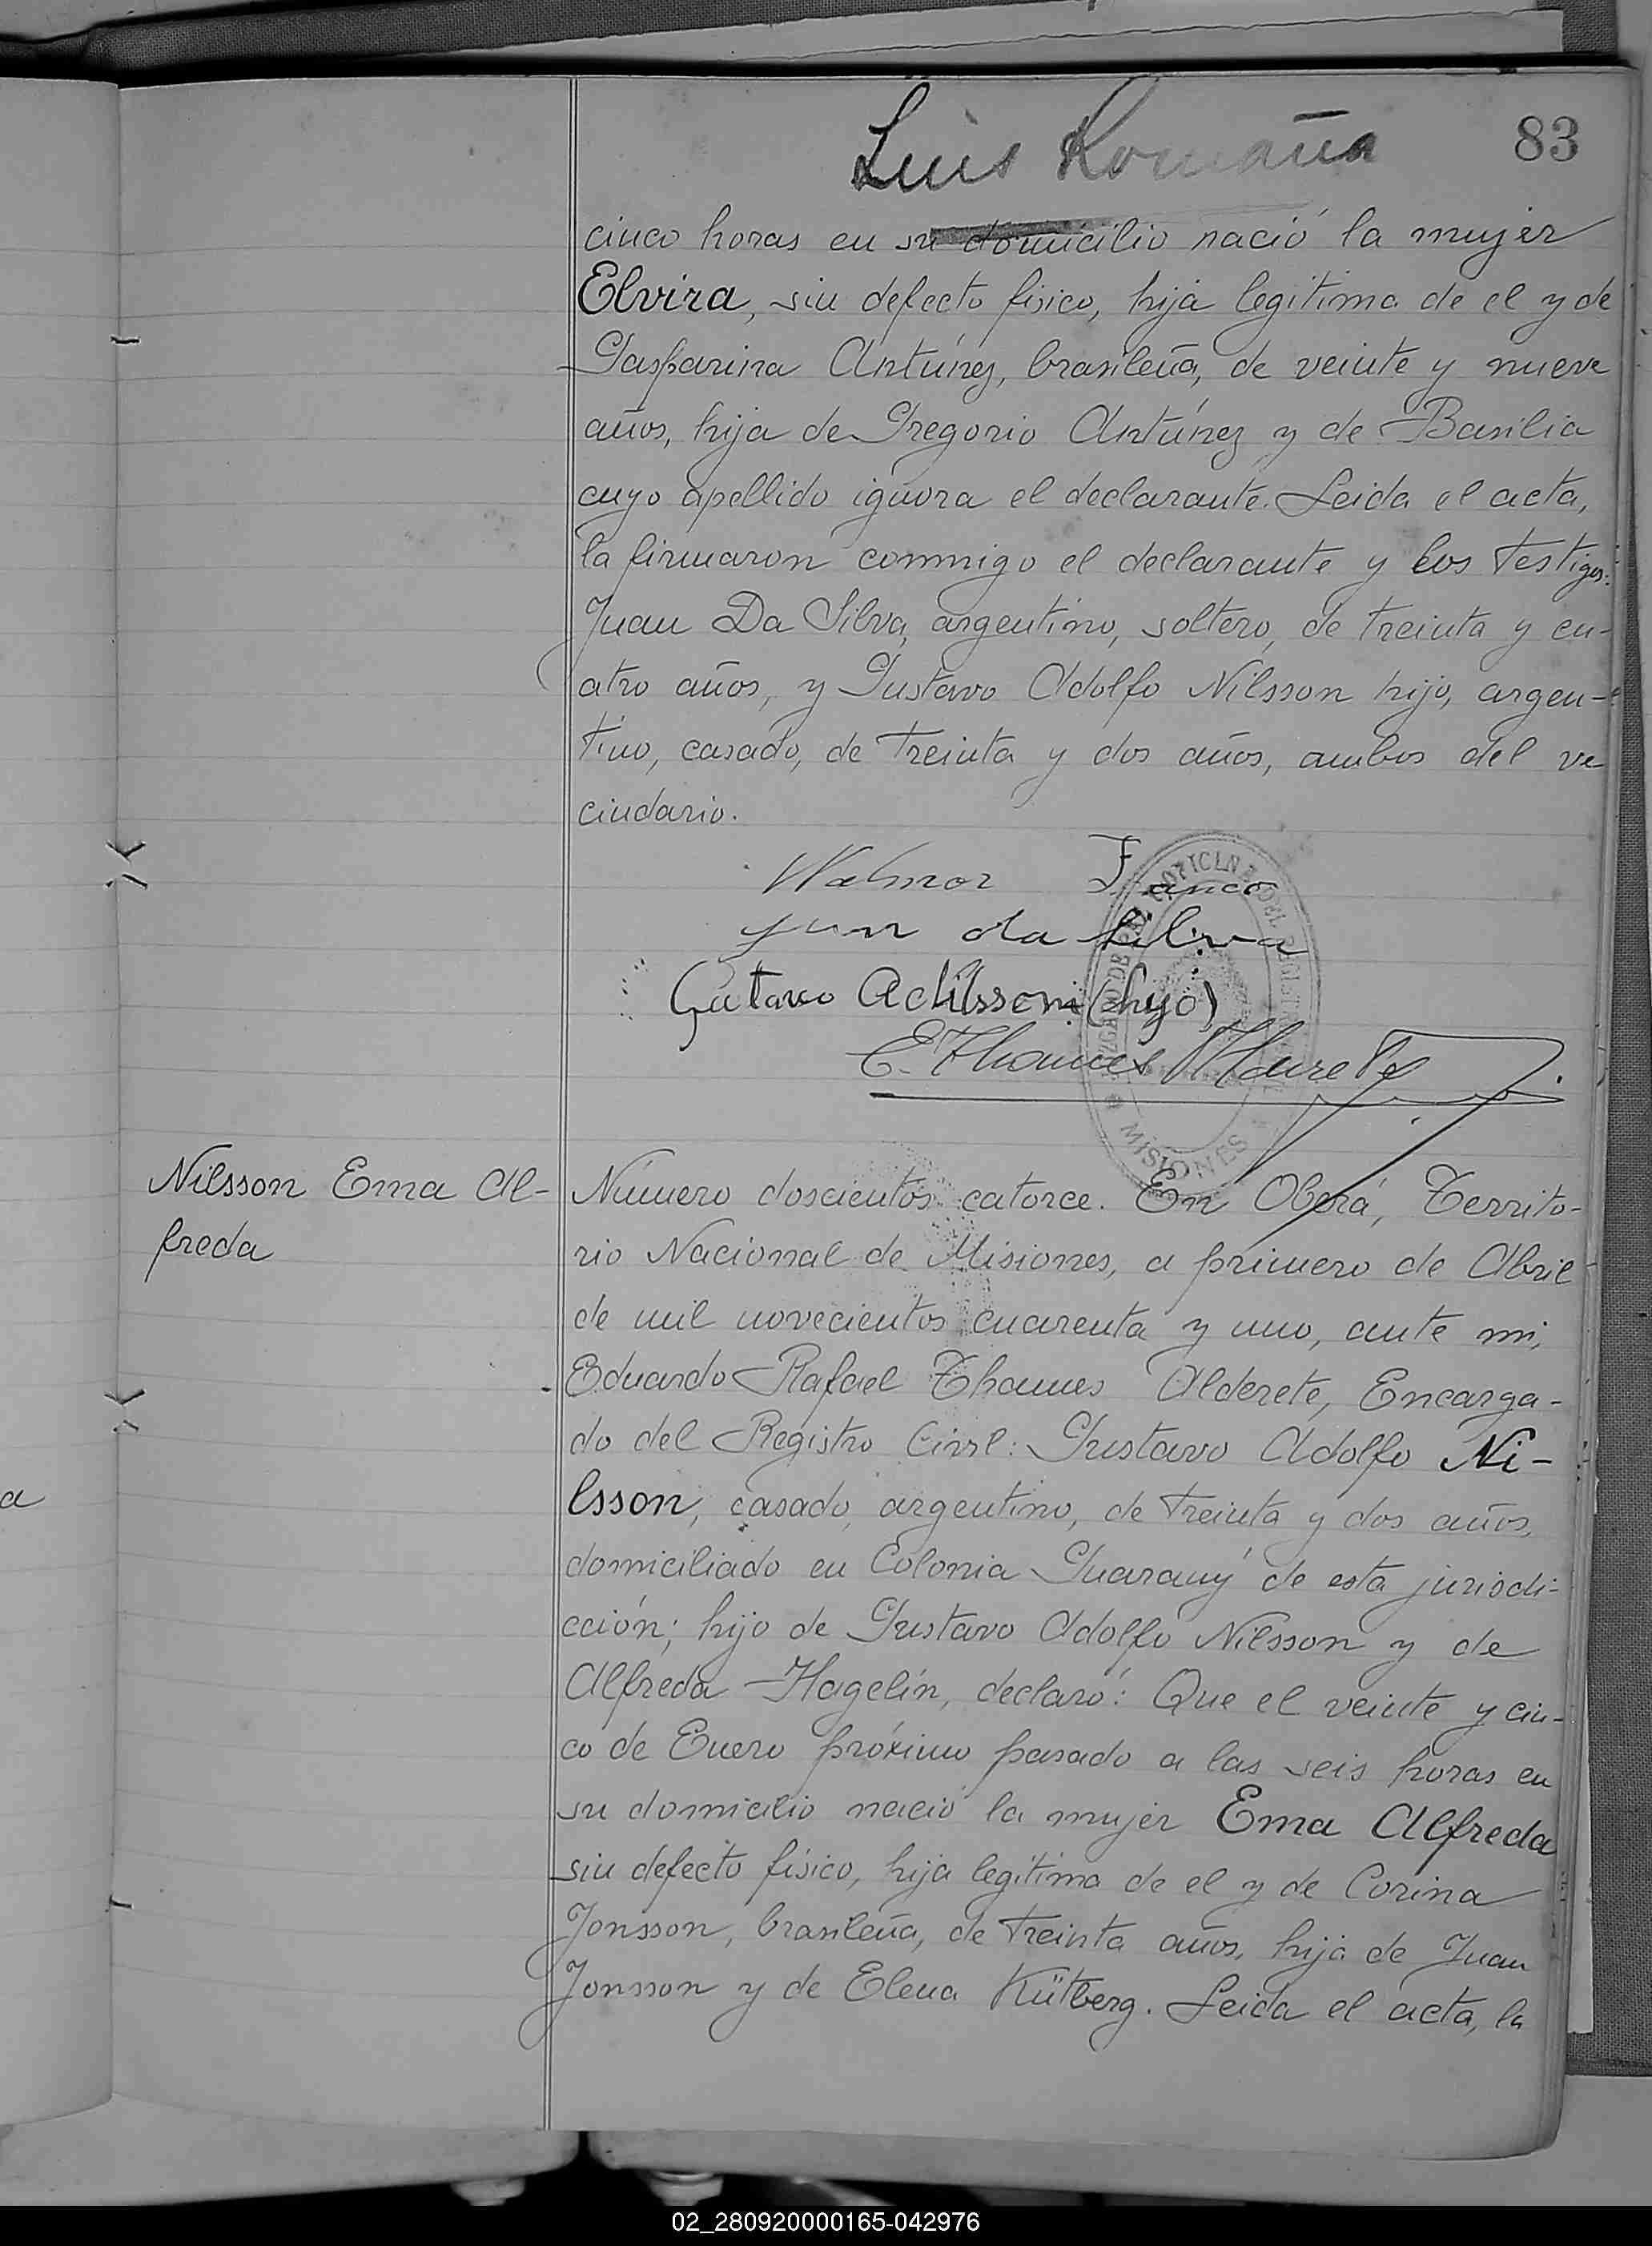 Luis Romaña
83
cinco horas en su domicilio nació la mujer
Elvira, sin defecto fisico, hija legitima de el y de
Gasparina Antúnez, brasileña, de veinte y nueve
años, hija de Gregorio Antúnez y de Basilia
cuyo apellido ignora el declarante. Leida el acta,
la firmaron conmigo el declarante y los testigos:
Juan Da Silva, argentino, soltero, de treinta y cu-
atro años, y Gustavo Adolfo Nilsson hijo, argen-
tino, casado, de treinta y dos años, ambos del ve
cindario.
Walmor Franco
Juan da Silva
Gustavo A Nilsson (hijo)
E. Thames Alderete
MISIONES
Nilsson Ema Al-
freda
Número doscientos catorce. En Oberá, Territo-
rio Nacional de Misiones, a primero de Abril
de mil novecientos cuarenta y uno, ante mi,
Eduardo Rafael Thames Alderete, Encarga-
do del Registro Civil: Gustavo Adolfo Ni-
lsson, casado, argentino, de treinta y dos años,
domiciliado en Colonia Guarany de esta jurisdi-
cción; hijo de Gustavo Adolfo Nilsson y de
Alfreda Hagelín, declaró: Que el veinte y cin-
co de Enero próximo pasado a las seis horas en
su domicilio nació la mujer Ema Alfreda
sin defecto físico, hija legítima de el y de Corina
Jonsson, brasileña, de treinta años, hija de Juan
Jonsson y de Elena Kütberg. Leida el acta, la
a
02_280920000165-042976